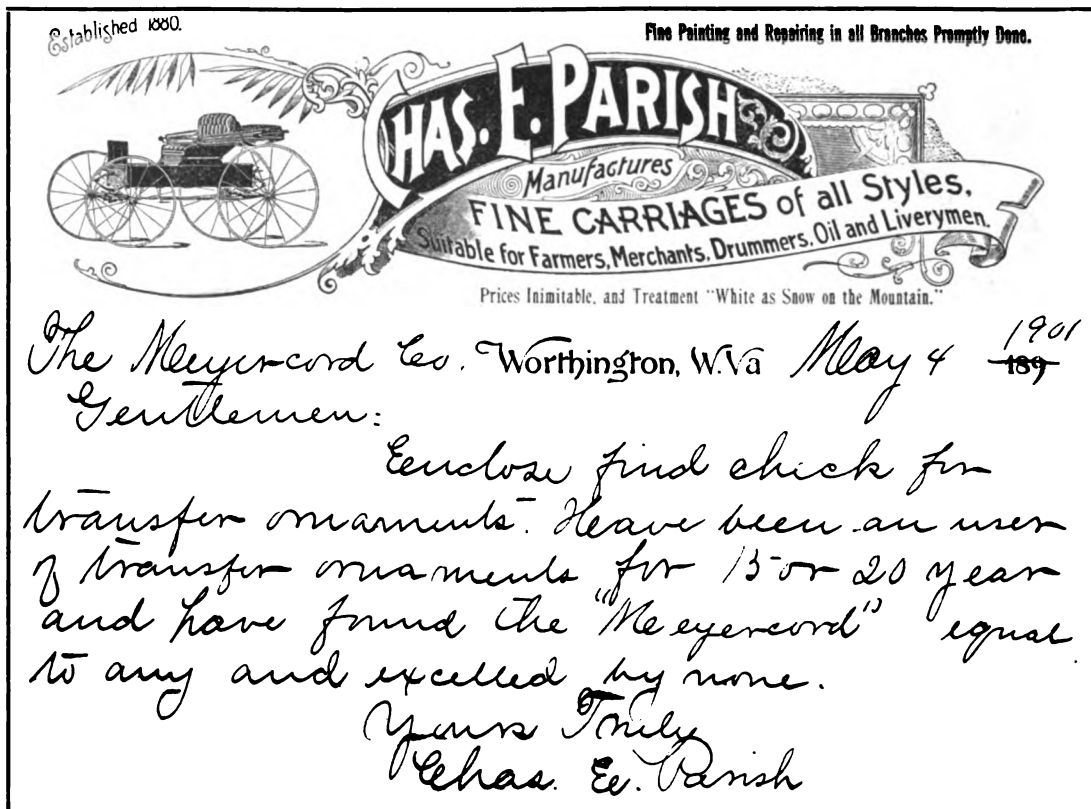 Established 1880.
Fine Painting and Repairing in all Branches Promptly Done.
CHAS. E. PARISH
Manufactures
FINE CARRIAGES of all Styles,
Suitable for Farmers, Merchants, Drummers, Oil and Liverymen.
Prices Inimitable, and Treatment "White as Snow on the Mountain."
The Meyercord Co. Worthington, W.Va May 4 1901
189
Gentlemen:
Enclose find check for
transfer ornaments. Have been an user
of transfer ornaments for 15 or 20 year
and have found the "Meyercord" equal
to any and excelled by none.
Yours Truly
Chas. E. Parish